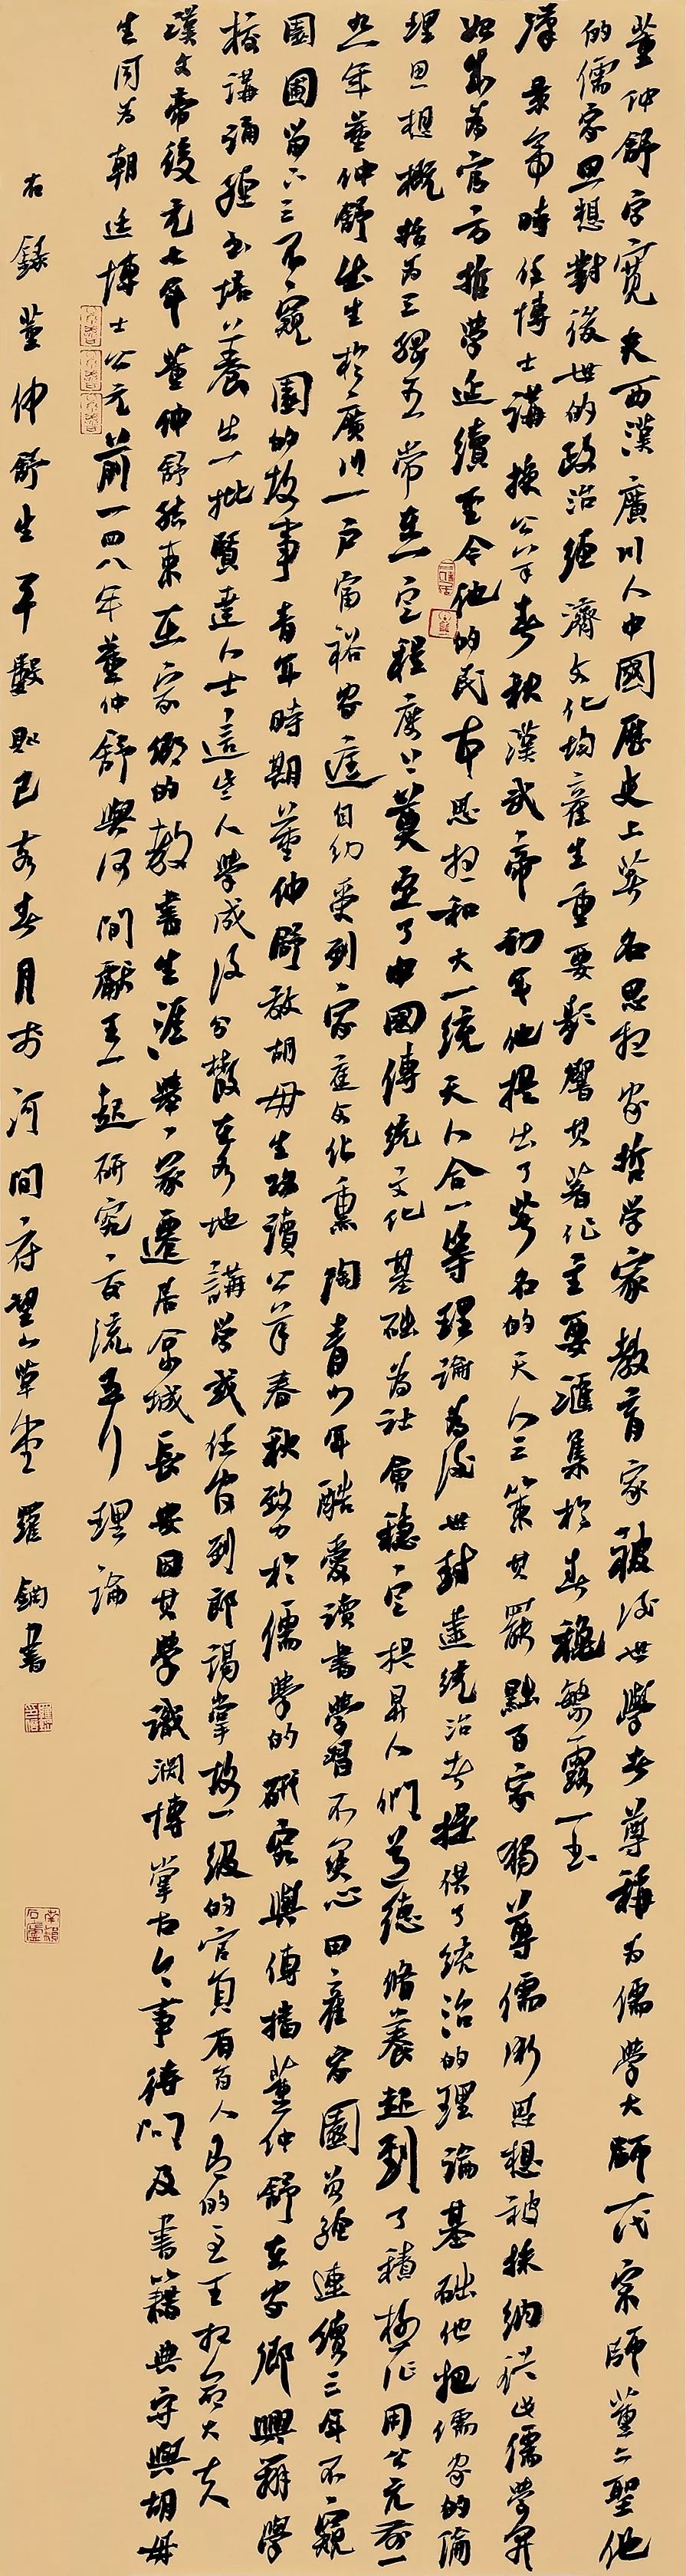 董仲舒字寬夫西漢廣川人中國歷史上著名思想家哲學家教育家被後世學者尊稱為儒學大師一代宗師董二聖他
的儒家思想對後世的政治經濟文化均產生重要影響其著作主要滙集於春秋繁露一書
漢景帝時任博士講授公羊春秋漢武帝初年他提出了著名的天人三策其罷黜百家獨尊儒術思想被採納從此儒學開
始成為官方哲學延續至今他的民本思想和大一統天人合一等理論為後世封建統治者提供了統治的理論基礎他把儒家的倫
理思想概括為三綱五常在一定程度上奠定了中國傳統文化基礎為社會穩定提昇人們道德脩養起到了積極作用公元前一
九年董仲舒出生於廣川一户富裕家庭自幼受到家庭文化熏陶青少年酷愛讀書學習不関心田產家園曾經連續三年不窺
園圃留下三不窺園的故事青年時期董仲舒敬胡毋生攻讀公羊春秋致力於儒學的研究與傳播董仲舒在家鄉興辦學
校講誦經書培養出一批賢達人士這些人學成後分散在各地講學或任官到郎謁掌故一級的官員有百人為的至王相命大夫
漢文帝後元七年董仲舒結束在家鄉的教書生涯舉家遷居京城長安因其學識淵博掌古今事待問及書籍典守與胡毋
生同為朝廷博士公元前一四八年董仲舒與河間獻王一起研究交流五行理論
右錄董仲舒生平數則己亥春月於河間府望山草堂羅鋼書